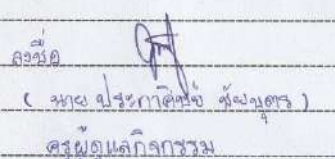 ลงชื่อ
( นาย ประกาศิตย์ ชัยบุตร )
ครูผู้ดูแลกิจกรรม